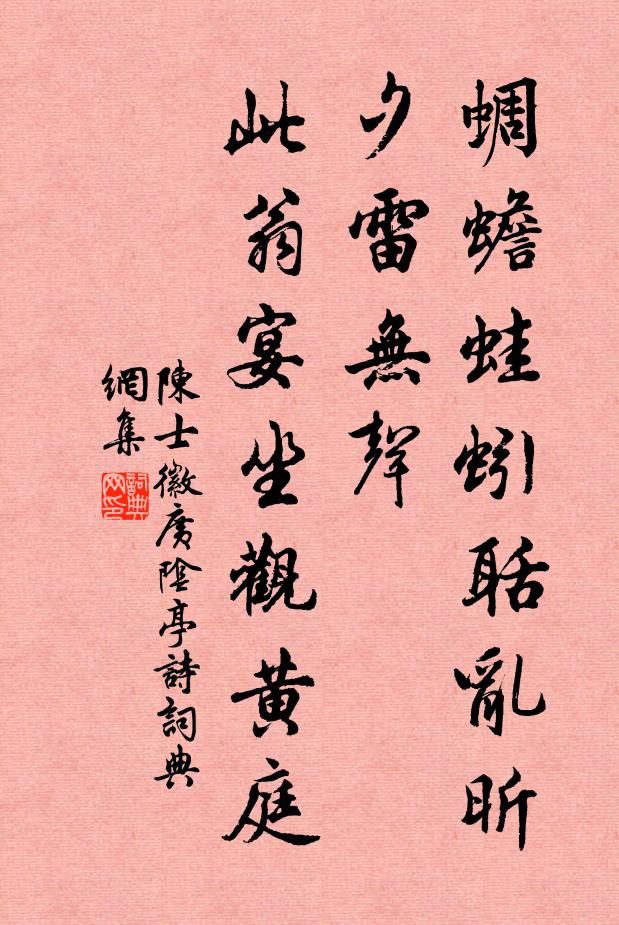 蜩蟾蛙蚓聒亂昕
夕雷無聲
此翁宴坐觀黄庭
陳士徽廣陰亭詩詞典
網集
詞典
网印